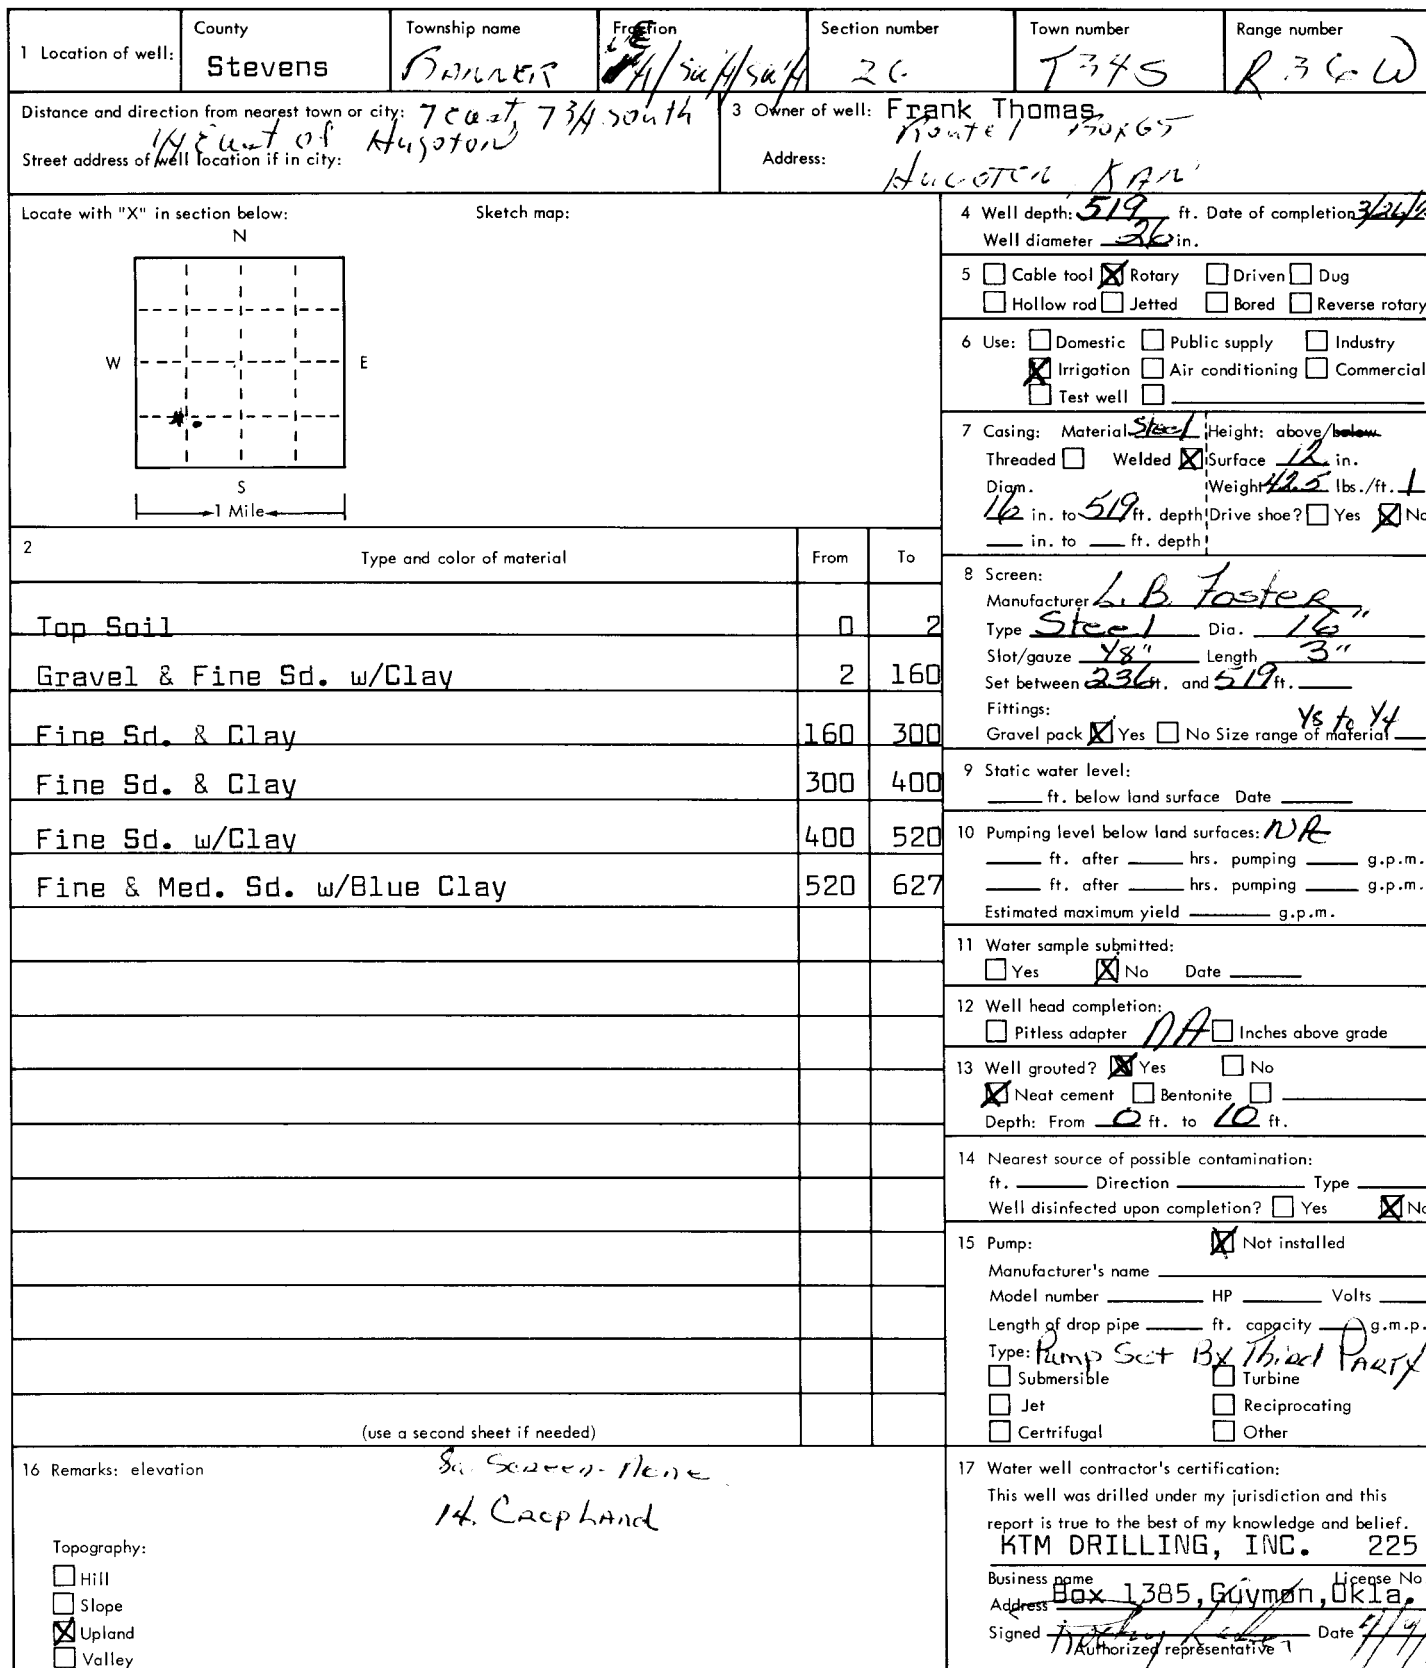 1 Location of well:
County
Stevens
Township name
BANNER
Fraction
E 1/4 SW 1/4 SW 1/4
Section number
26
Town number
T34S
Range number
R 36 W
Distance and direction from nearest town or city: 7 east, 7 3/4 south
1/4 East of Hugoton
Street address of well location if in city:
3 Owner of well: Frank Thomas
Route 1 Box 65
Address:
Hugoton KAN
Locate with "X" in section below:
Sketch map:
N
W
E
S
1 Mile
2
Type and color of material
From
To
Top Soil 0 2
Gravel & Fine Sd. w/Clay 2 160
Fine Sd. & Clay 160 300
Fine Sd. & Clay 300 400
Fine Sd. w/Clay 400 520
Fine & Med. Sd. w/Blue Clay 520 627
(use a second sheet if needed)
4 Well depth: 519 ft. Date of completion 3/26/
Well diameter 26 in.
5 Cable tool X Rotary Driven Dug
Hollow rod Jetted Bored Reverse rotary
6 Use: Domestic Public supply Industry
X Irrigation Air conditioning Commercial
Test well
7 Casing: Material Steel Height: above/below
Threaded Welded X Surface 12 in.
Diam. Weight 42.5 lbs./ft. 1
16 in. to 519 ft. depth Drive shoe? Yes X No
in. to ft. depth
8 Screen:
Manufacturer L. B. Foster
Type Steel Dia. 16"
Slot/gauze 1/8" Length 3"
Set between 236 ft. and 519 ft.
Fittings:
1/8 to 1/4
Gravel pack X Yes No Size range of material
9 Static water level:
ft. below land surface Date
10 Pumping level below land surfaces: NA
ft. after hrs. pumping g.p.m.
ft. after hrs. pumping g.p.m.
Estimated maximum yield g.p.m.
11 Water sample submitted:
Yes X No Date
12 Well head completion:
Pitless adapter NA Inches above grade
13 Well grouted? X Yes No
X Neat cement Bentonite
Depth: From 0 ft. to 10 ft.
14 Nearest source of possible contamination:
ft. Direction Type
Well disinfected upon completion? Yes X No
15 Pump: X Not installed
Manufacturer's name
Model number HP Volts
Length of drop pipe ft. capacity g.m.p.
Type: Pump Set By Third PARTY
Submersible Turbine
Jet Reciprocating
Certrifugal Other
16 Remarks: elevation
8. Screen-None
14. CropLAnd
Topography:
Hill
Slope
X Upland
Valley
17 Water well contractor's certification:
This well was drilled under my jurisdiction and this
report is true to the best of my knowledge and belief.
KTM DRILLING, INC. 225
Business name License No
Address Box 1385, Guymon, Okla.
Signed Date
Authorized representative